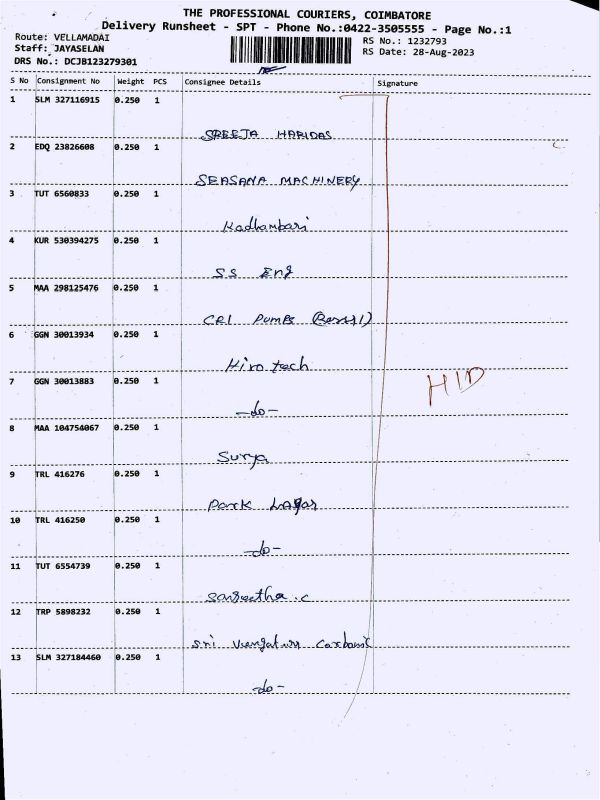 THE PROFESSIONAL COURIERS, COIMBATORE
Delivery Runsheet - SPT - Phone No.:0422-3505555 - Page No.:1
Route: VELLAMADAI
Staff: JAYASELAN
DRS No.: DCJB123279301
RS No.: 1232793
RS Date: 28-Aug-2023
S No Consignment No Weight PCS Consignee Details Signature
1 SLM 327116915 0.250 1
SREEJA HARIDAS
2 EDQ 23826608 0.250 1
SEASANA MACHINERY
3 TUT 6560833 0.250 1
Kadhambari
4 KUR 530394275 0.250 1
SS Eng
5 MAA 298125476 0.250 1
CRI Pumps
6 GGN 30013934 0.250 1
Hiro tech
7 GGN 30013883 0.250 1
HID
-do-
8 MAA 104754067 0.250 1
Surya
9 TRL 416276 0.250 1
Park
10 TRL 416250 0.250 1
-do-
11 TUT 6554739 0.250 1
Sangeetha.c
12 TRP 5898232 0.250 1
Sri
13 SLM 327184460 0.250 1
-do-